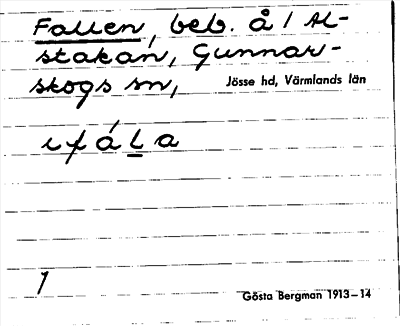 Fallen, beb. å 1 Al-
stakan, Gunnar-
skogs sn,
Jösse hd, Värmlands län
i fáLa
1
Gösta Bergman 1913–14